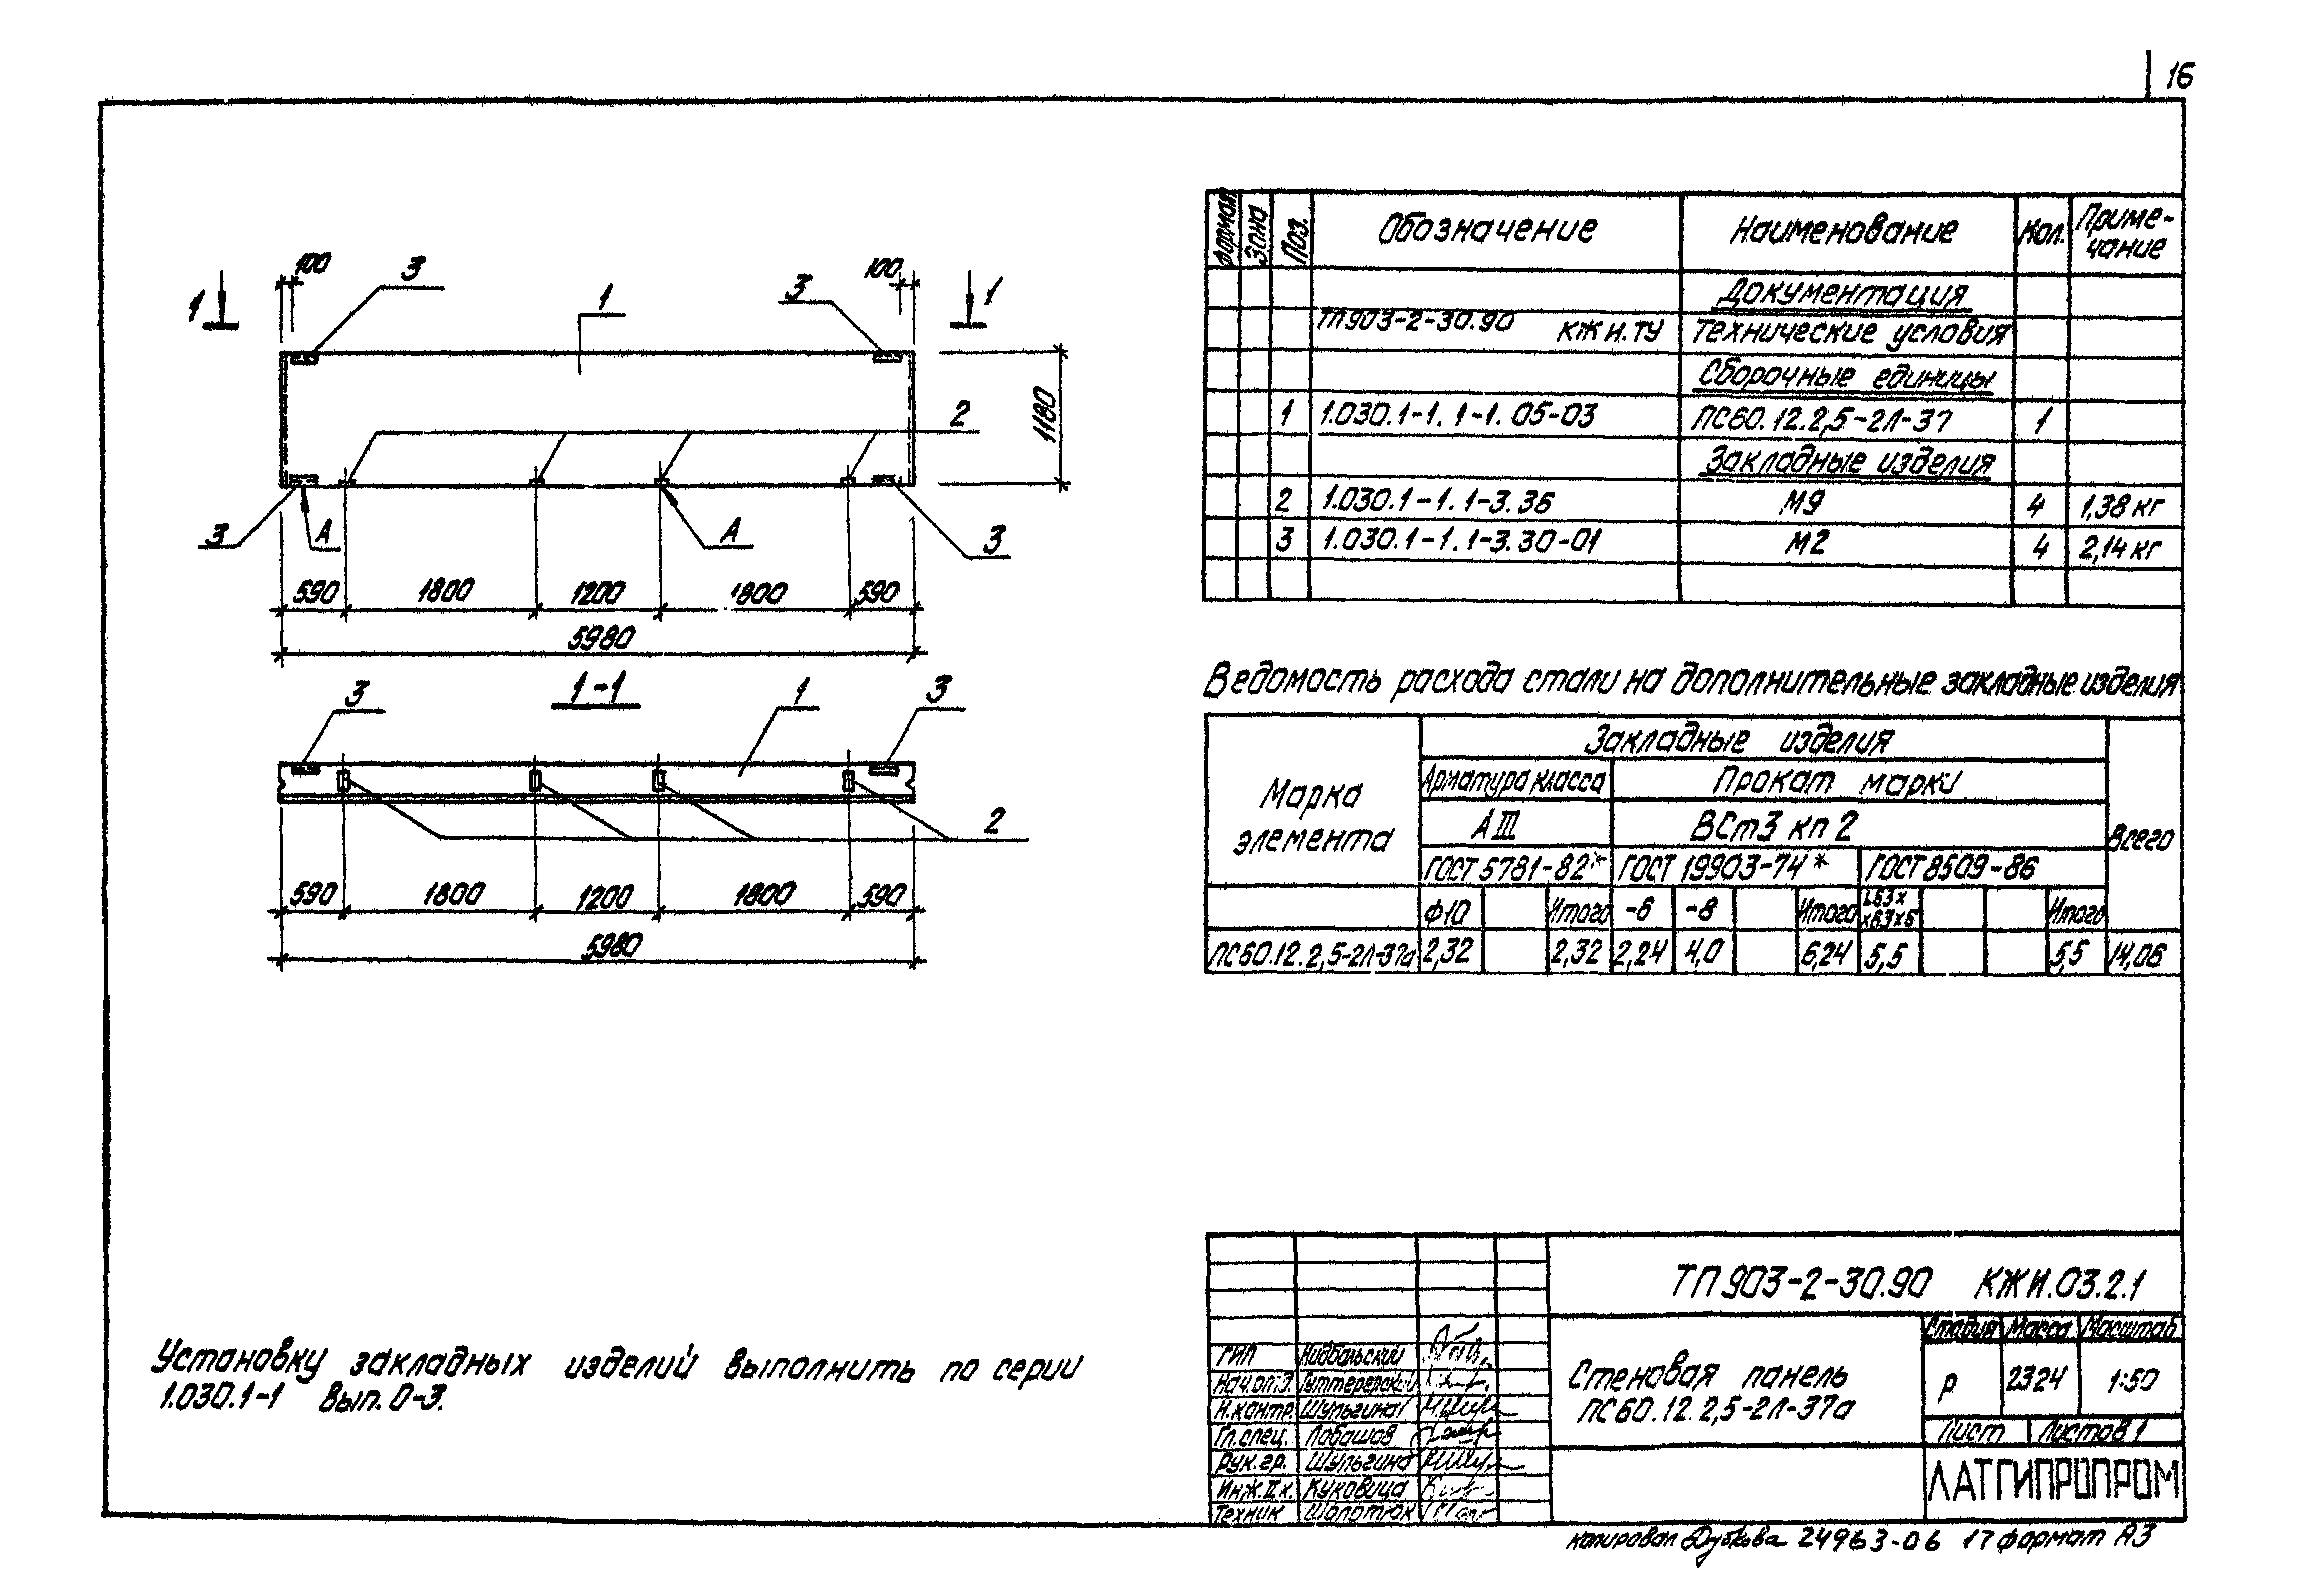 16
100 3 1 3 100
1 1
2
1180
3 А А 3
590 1800 1200 1800 590
5980
1-1
3 1 3
2
590 1800 1200 1800 590
5980
Установку закладных изделий выполнить по серии
1.030.1-1 вып. 0-3.
Формат Зона Поз. Обозначение Наименование Кол. Приме-
чание
Документация
ТП903-2-30.90 КЖИ.ТУ Технические условия
Сборочные единицы
1 1.030.1-1.1-1.05-03 ПС60.12.2,5-2Л-37 1
Закладные изделия
2 1.030.1-1.1-3.36 М9 4 1,38 кг
3 1.030.1-1.1-3.30-01 М2 4 2,14 кг
Ведомость расхода стали на дополнительные закладные изделия
Марка
элемента
Закладные изделия
Всего
Арматура класса Прокат марки
А III ВСт3 кп 2
ГОСТ 5781-82* ГОСТ 19903-74* ГОСТ 8509-86
Ф10 Итого -6 -8 Итого L63х
х63х6 Итого
ПС60.12.2,5-2Л-37а 2,32 2,32 2,24 4,0 6,24 5,5 5,5 14,06
ТП903-2-30.90 КЖИ.03.2.1
Стеновая панель
ПС60.12.2,5-2Л-37а
Стадия Масса Масштаб
Р 2324 1:50
Лист Листов 1
ЛАТГИПРОПРОМ
ГИП Нидбальский
Нач.отд.
Н.контр. Шульгина
Гл.спец. Лабашов
Рук.гр. Шульгина
Инж.II к. Куковица
Техник Шолотюк
копировал Дубкова 24963-06 17 формат А3